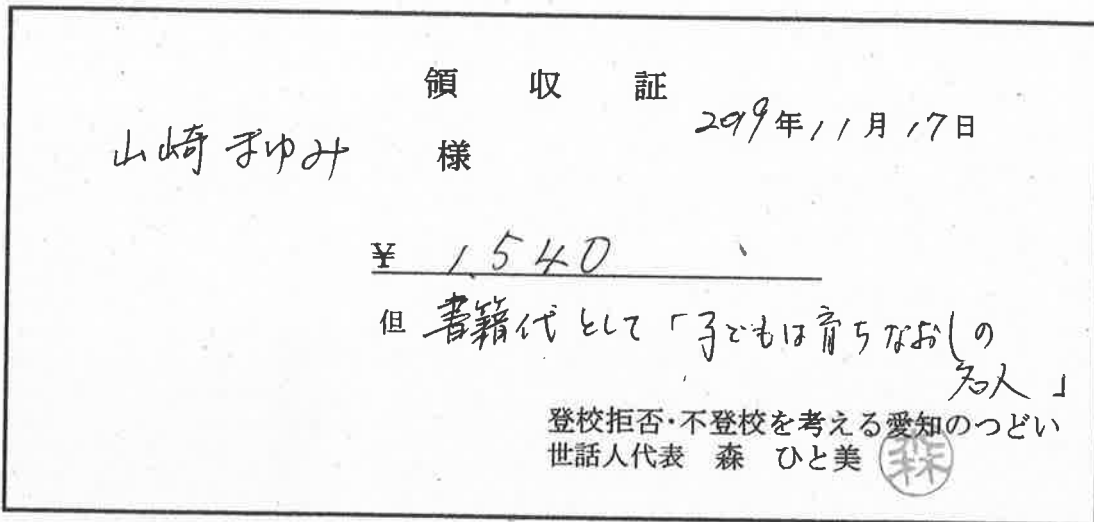 領収証
2019年11月17日
山崎まゆみ 様
¥ 1,540
但 書籍代として「子どもは育ちなおしの
名人」
登校拒否・不登校を考える愛知のつどい
世話人代表 森 ひと美 森